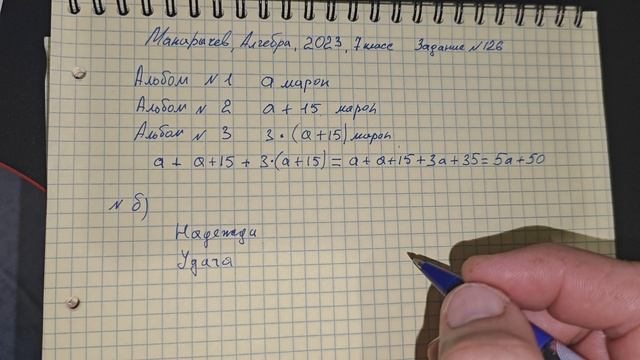 Макарычев, Алгебра, 2023, 7 класс Задание №126
Альбом №1 a марок
Альбом № 2 a + 15 марок
Альбом № 3 3·(a+15) марок
a + a+15 + 3·(a+15) = a+a+15+3a+35=5a+50
№ б)
Надежда
Удача